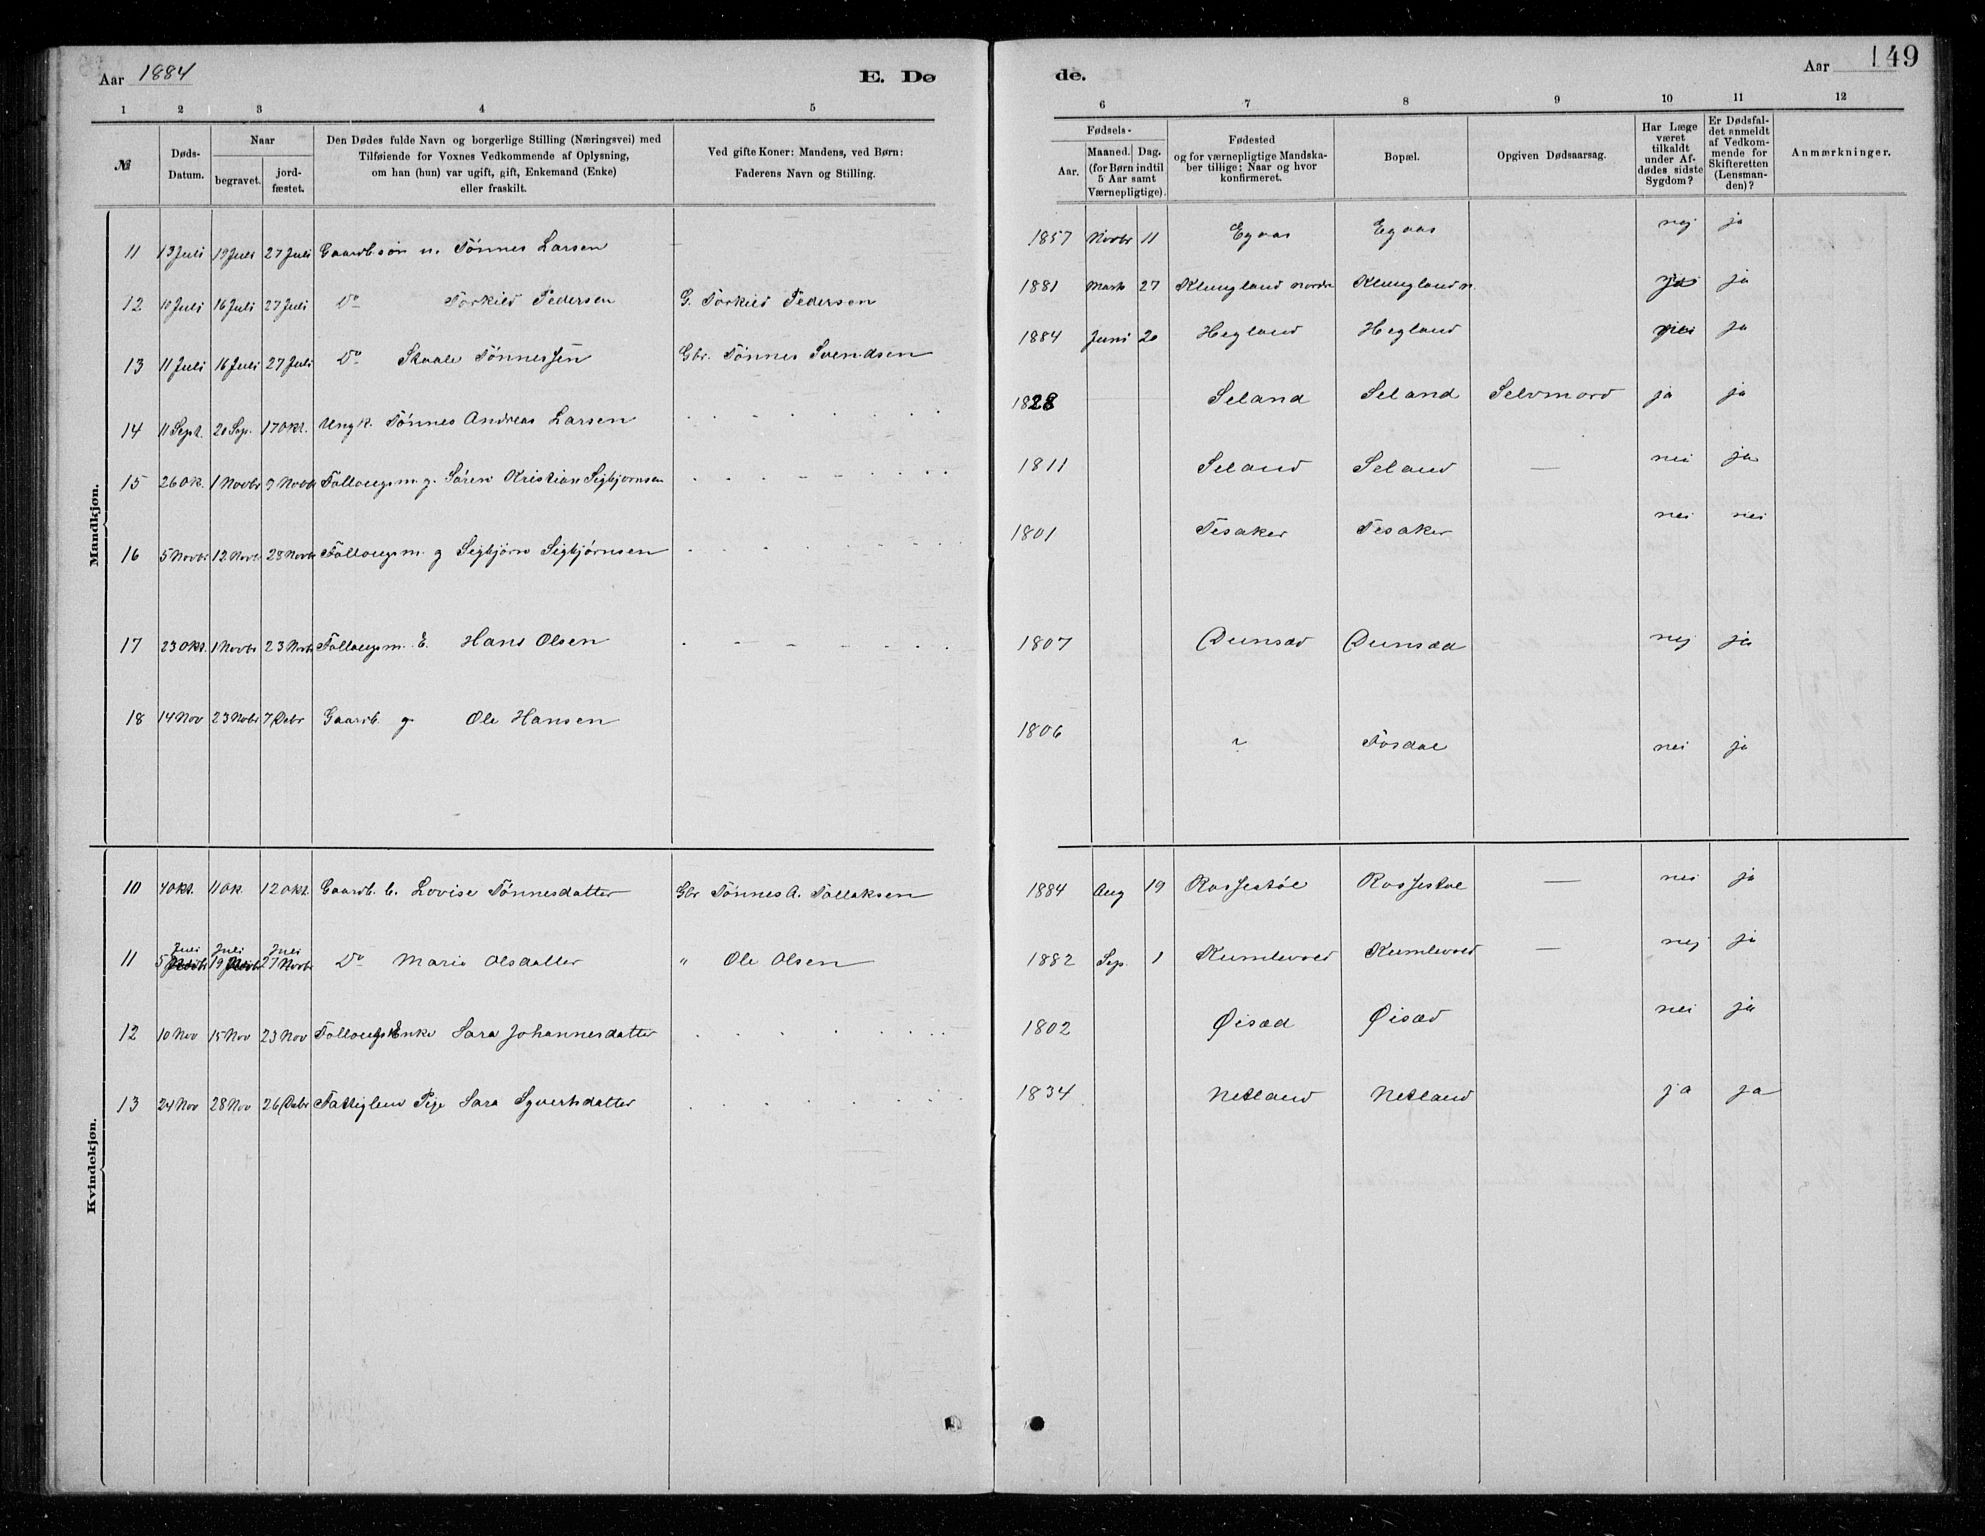 Aar 1884 E. Dø
de. Aar 149
1 2 3 4 5
6 7 8 9 10 11 12
№ Døds-Datum. Naar begravet. jord-fæstet. Den Dødes fulde Navn og borgerlige Stilling (Næringsvei) med Tilføiende for Voxnes Vedkommende af Oplysning, om han (hun) var ugift, gift, Enkemand (Enke) eller fraskilt. Ved gifte Koner: Mandens, ved Børn: Faderens Navn og Stilling.
Fødsels- Aar. Maaned. Dag. (for Børn indtil 5 Aar samt Værnepligtige). Fødested og for værnepligtige Mandskaber tillige: Naar og hvor konfirmeret. Bopæl. Opgiven Dødsaarsag. Har Læge været tilkaldt under Afdødes sidste Sygdom? Er Dødsfaldet anmeldt af Vedkommende for Skifteretten (Lensmanden)? Anmærkninger.
Mandkjøn.
11 13 Juli 19 Juli 27 Juli Gaardb. søn u. Tønnes Larsen — 1857 Novbr 11 Egaas Egaas nej ja
12 10 Juli 16 Juli 27 Juli Do Torkild Pedersen G. Torkild Pedersen 1881 Marts 27 Klungland nordre Klungland n. ja
13 11 Juli 16 Juli 27 Juli Do Staale Tønnessen Gbr. Tønnes Svendsen 1884 Juni 20 Hegland Hegland nei ja
14 11 Sept. 20 Sep. 17 Okt. Ungk. Tønnes Andreas Larsen 1828 Seland Seland Selvmord ja ja
15 26 Ok. 1 Novbr 9 Novb Follougsm. g. Søren Kristian Sigbjørnsen 1811 Seland Seland — nei ja
16 5 Novbr 12 Novb 23 Novb Follougsm. g Sigbjørn Sigbjørnsen 1801 Tesaker Tesaker nei nei
17 23 Okt. 1 Novbr 23 Novb Follougsm. E. Hans Olsen 1807 Dunsæd Dunsæd nej ja
18 14 Nov 23 Nobr 7 Debr Gaardb. g Ole Hansen 1806 Fosdal nei ja
Kvindekjøn.
10 4 Okt. 11 Ok 12 Okt. Gaardb. b. Lovise Tønnesdatter Gbr Tønnes A. Tollaksen 1884 Aug 19 Rossestøl Rossestøl — nei ja
11 5 Juli 19 Juli 27 Juli Novbr Do Maria Olsdatter " Ole Olsen 1882 Sep. 1 Kumlevold Kumlevold — nej ja
12 10 Nov 15 Nov 23 Nov Follougs Enke Sara Johannesdatter 1802 Øisæd Øisæd nei ja
13 24 Nov 28 Nov 26 Debr Fattiglem Pige Sara Syvertsdatter 1834 Netland Netland ja ja